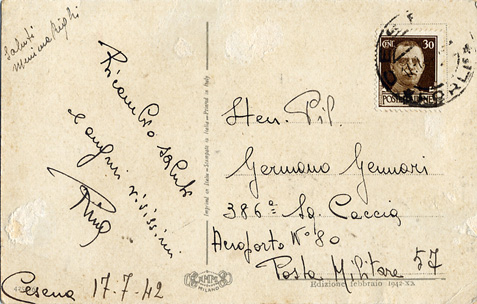 Saluti
Mimma Righi
Ricambio saluti
e auguri vivissimi
Cesena 17-7-42
Imprimé en Italie - Stampato in Italia - Printed in Italy
MILANO
CENT. 30
POSTE ITALIANE
CESENA
FORLI
Sten. Pil.
Germano Gennari
386ª Sq. Caccia
Aeroporto N° 80
Posta Militare 57
Edizione febbraio 1942-XX